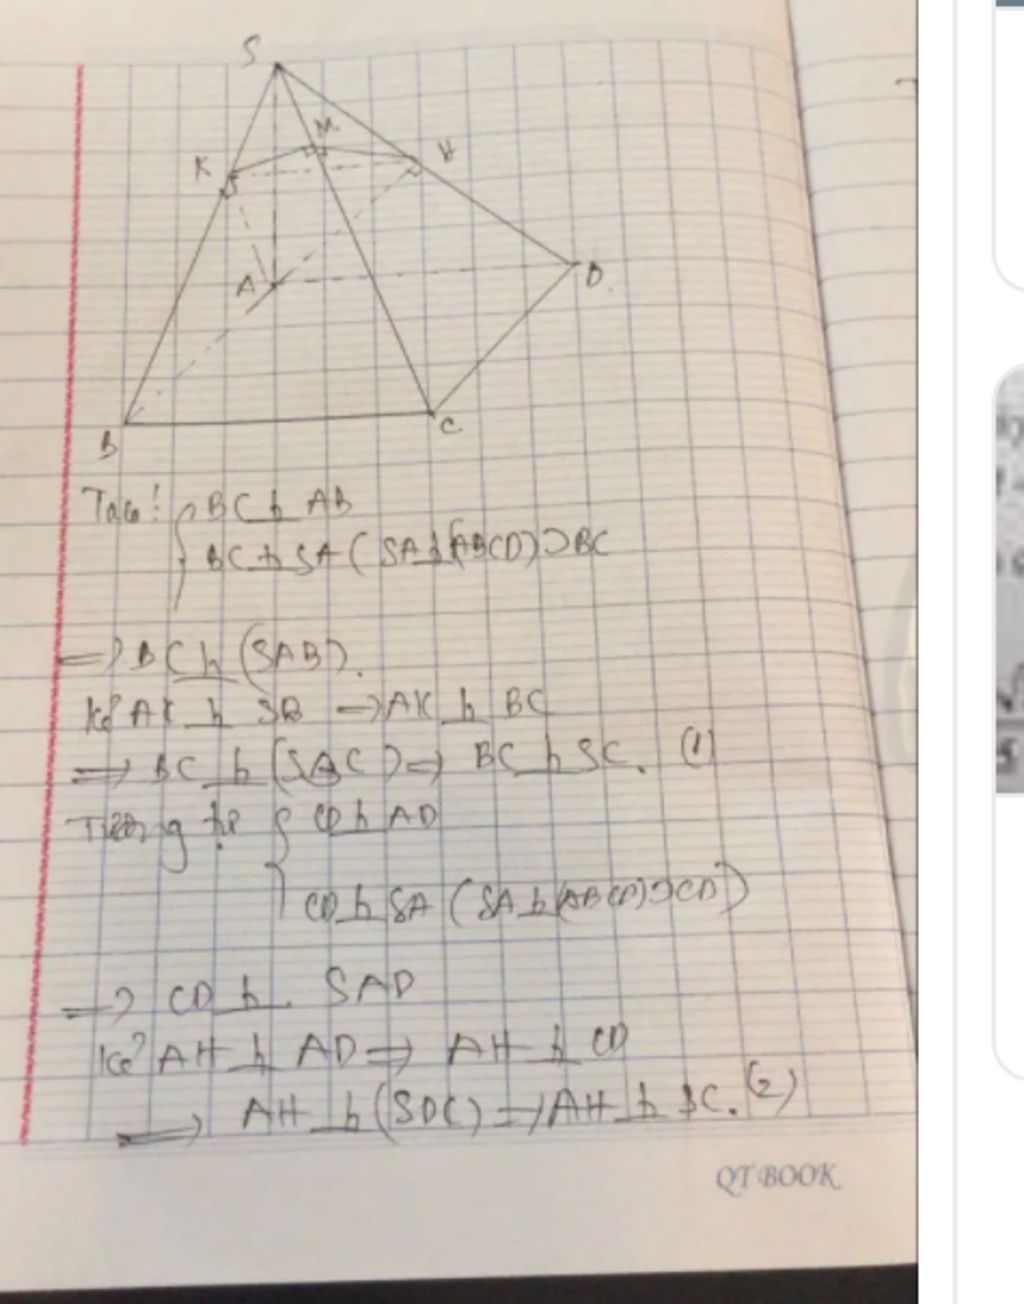 S
M
K
H
A
D
B
C
Ta có: { BC ⊥ AB
BC ⊥ SA (SA ⊥ (ABCD) ⊃ BC
=> BC ⊥ (SAB).
Kẻ AK ⊥ SB → AK ⊥ BC
=> BC ⊥ (SBC) => BC ⊥ SC. (1)
Tương tự { CD ⊥ AD
CD ⊥ SA (SA ⊥ (ABCD) ⊃ CD)
=> CD ⊥ SAD
Kẻ AH ⊥ AD => AH ⊥ CD
=> AH ⊥ (SDC) → AH ⊥ SC. (2)
QT BOOK